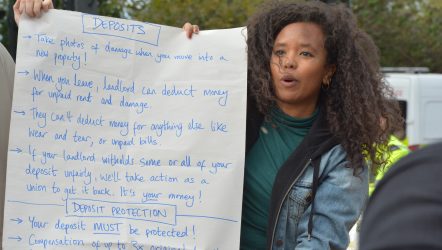 DEPOSITS
→ Take photos of damage when you move into a
new property!
→ When you leave, landlord can deduct money
for unpaid rent and damage.
→ They can't deduct money for anything else like
wear and tear, or unpaid bills.
→ If your landlord witholds some or all of your
deposit unfairly, we'll take action as a
union to get it back. It's your money!
DEPOSIT PROTECTION
→ Your deposit MUST be protected!
→ Compensation of up to 3x